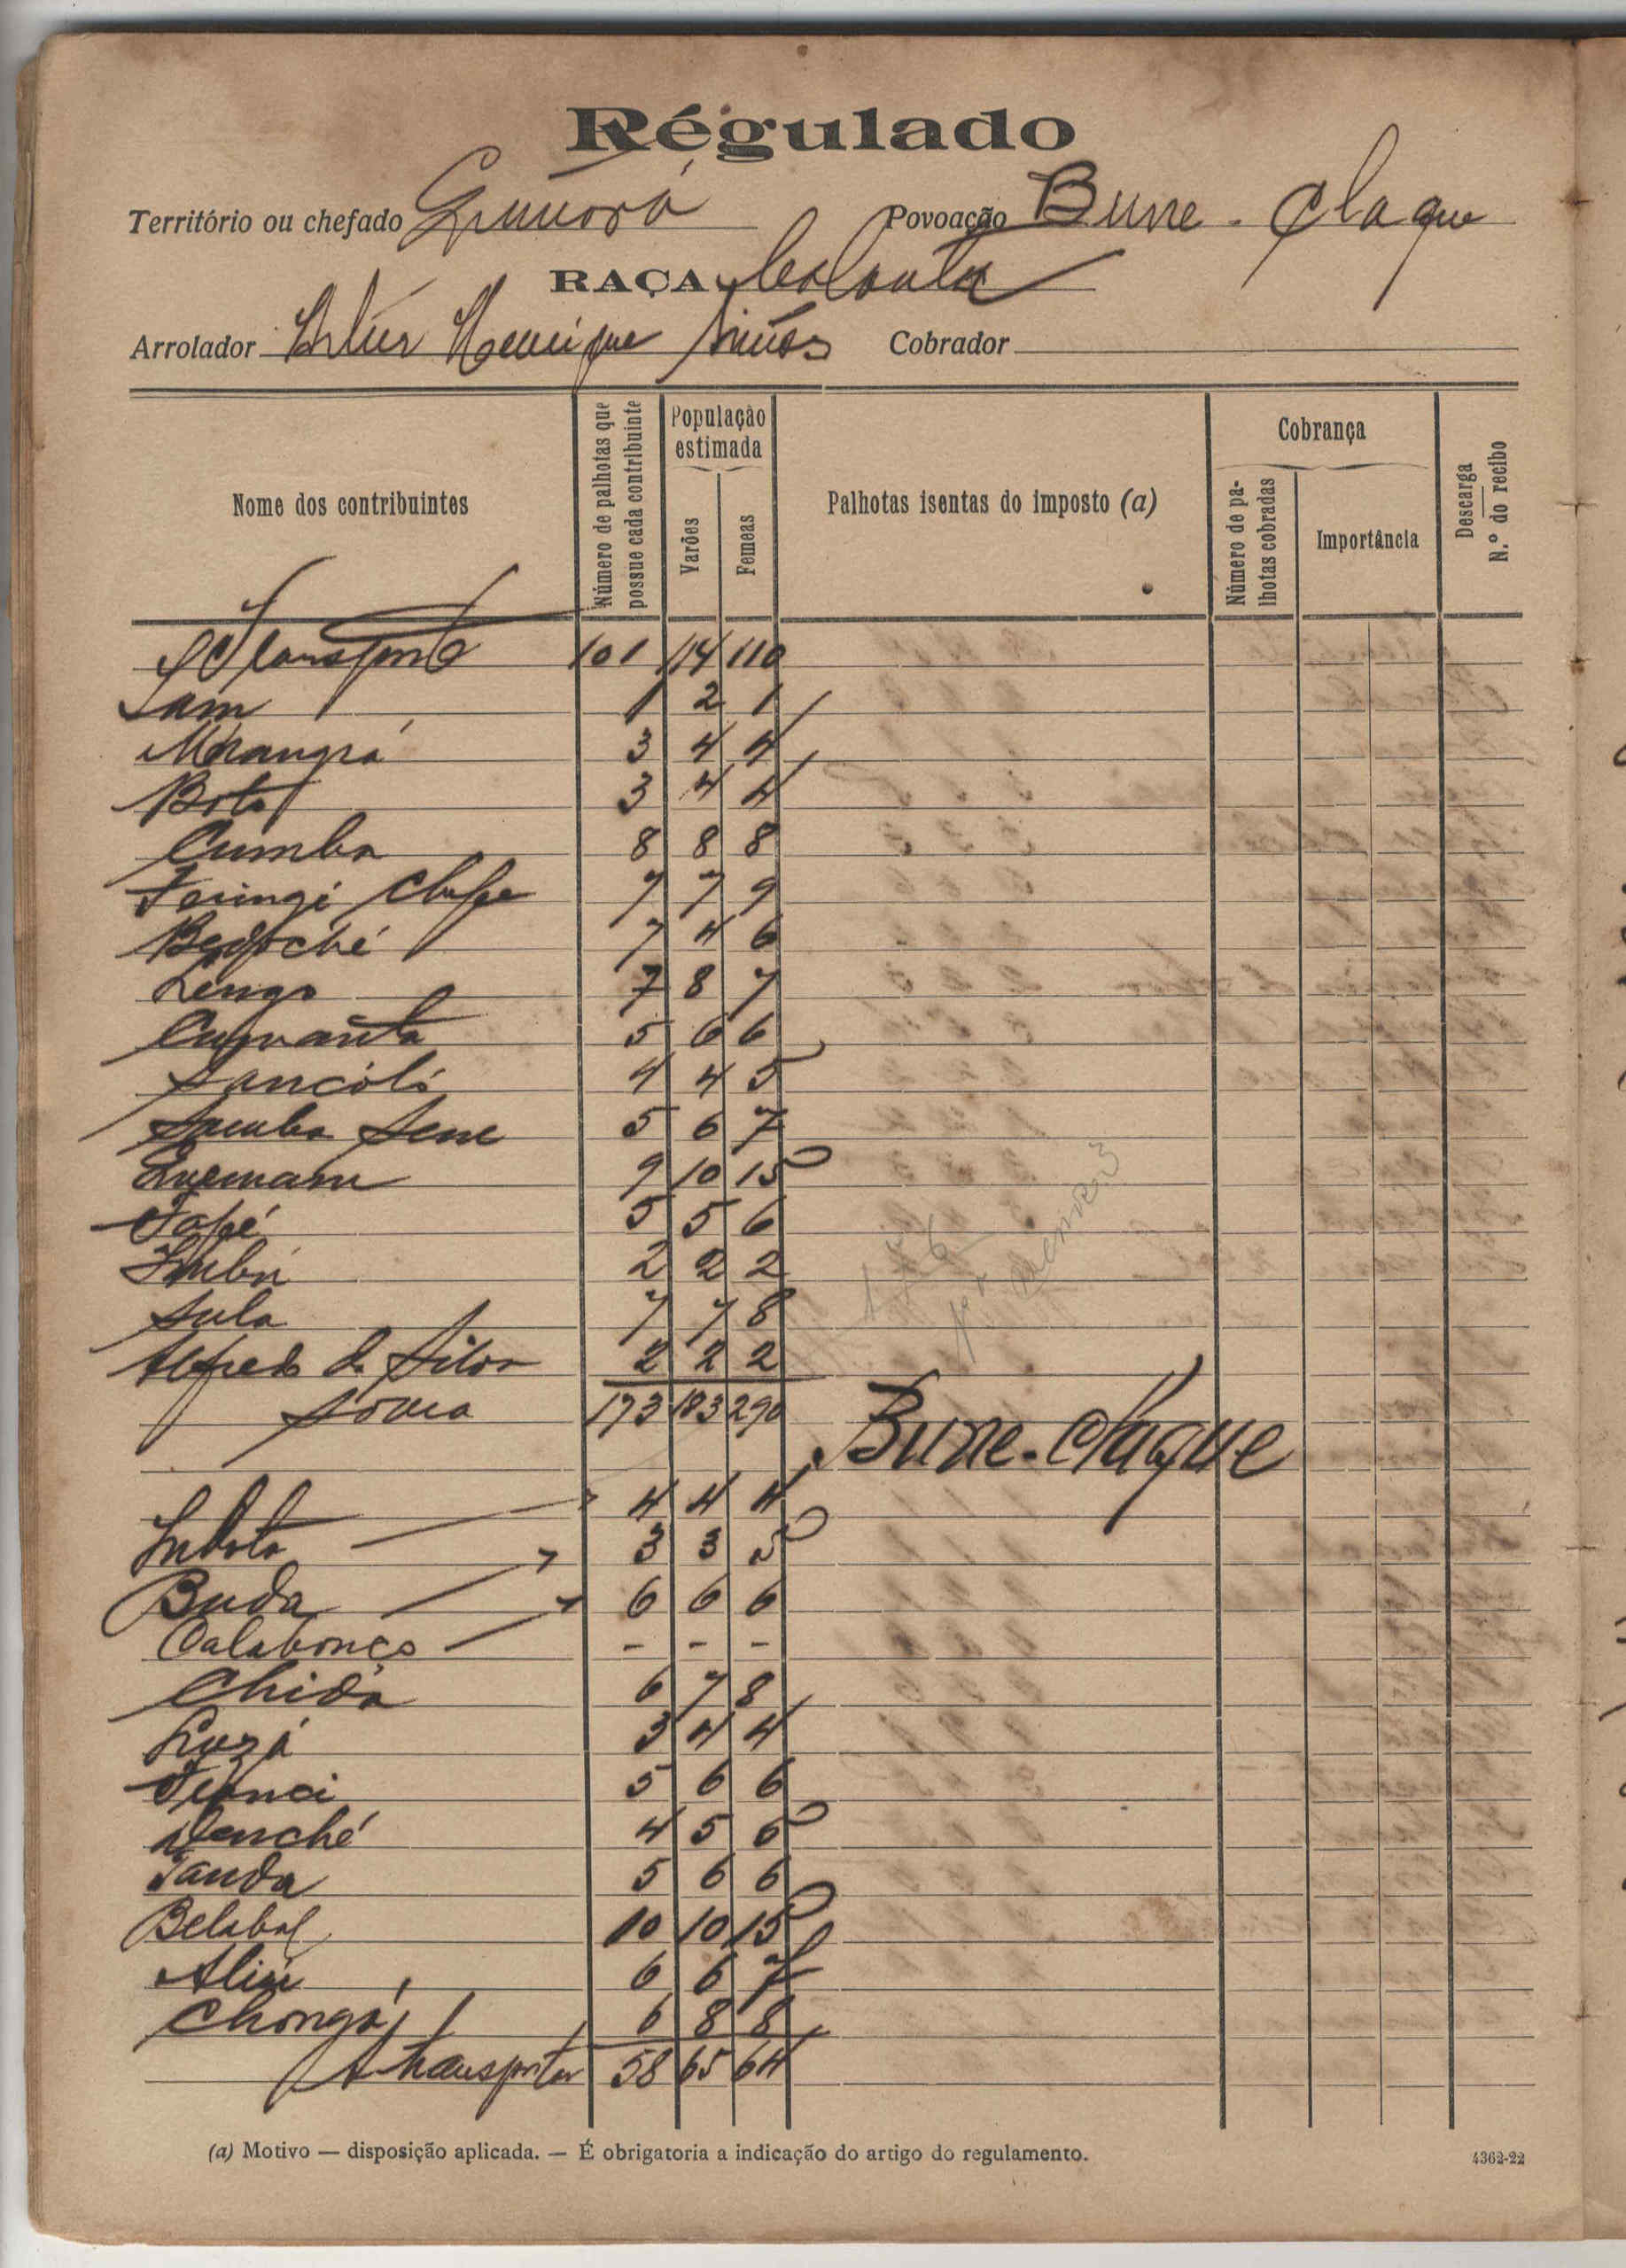 Régulado
Território ou chefado Guinára Povoação Bune-Claque
RAÇA
Arrolador Artur Henrique Cobrador
Nome dos contribuintes
Número de palhotas que possue cada contribuinte
População estimada
Varões
Femeas
Palhotas isentas do imposto (a)
Cobrança
Número de palhotas cobradas
Importância
Descarga
N.º do recibo
Transporte 101 114 110
Sam 1 2 1
3 4 4
Boto 3 4 4
Cumba 8 8 8
7 7 9
7 4 6
Lengo 7 8 7
5 6 6
Sancóló 4 4 5
Samba Sene 5 6 7
9 10 15
Tapé 5 5 6
2 2 2
Sula 7 7 8
Alfredo da Silva 2 2 2
Soma 173 183 290
Bune-Claque
4 4 4
Indoto 3 3 5
Buda 6 6 6
Calabonço - - -
Chida 6 7 8
3 4 4
5 6 6
4 5 6
Tanda 5 6 6
Belabol 10 10 15
Aliu 6 6 7
Chongá 6 8 8
A transportar 58 65 64
(a) Motivo — disposição aplicada. — É obrigatoria a indicação do artigo do regulamento.
4362-22